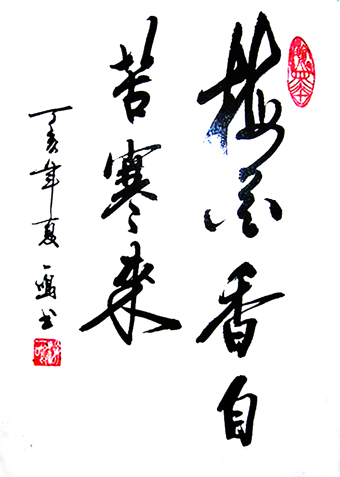 梅花香自
苦寒来
丁亥年夏一鸣书